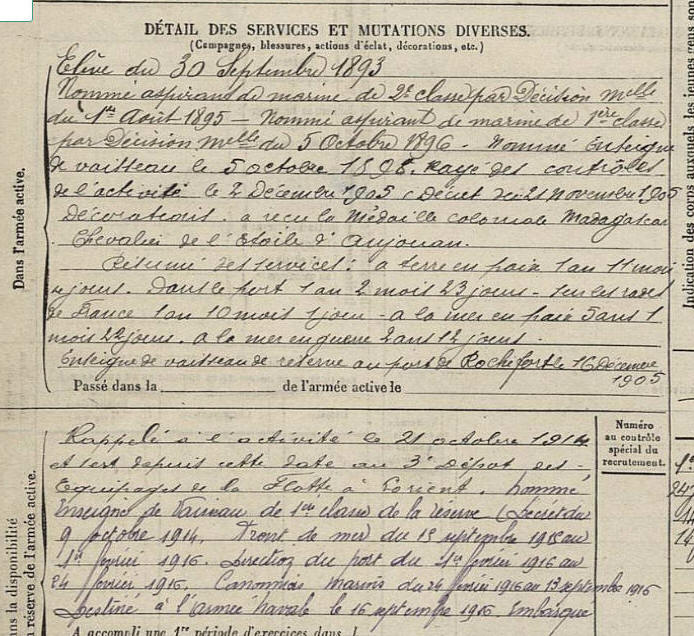 DÉTAIL DES SERVICES ET MUTATIONS DIVERSES.
(Campagnes, blessures, actions d'éclat, décorations, etc.)
Elève du 30 Septembre 1893
Nommé aspirant de marine de 2e classe par Décision Mlle
du 1er Août 1895 — Nommé aspirant de marine de 1ère classe
par Décision Mlle du 5 Octobre 1896 - Nommé Enseigne
de vaisseau le 5 octobre 1898. Rayé des contrôles
de l'activité le 2 Décembre 1905 (Décret du 21 Novembre 1905
Décorations. a reçu la Médaille coloniale Madagascar
Chevalier de l'Etoile d'Anjouan.
Résumé des services : a terre en paix 1 an 11 mois
jours. Dans le port 1 an 2 mois 23 jours - sur les rades
de France 1 an 10 mois 1 jour - a la mer en paix 5 ans 1
mois 22 jours. a la mer en guerre 2 ans 12 jours.
Enseigne de vaisseau de réserve au port de Rochefort le 16 Décembre
1905
Passé dans la de l'armée active le
Dans l'armée active.
Indication des corps auxquels les jeunes gens son
Numéro
au contrôle
spécial du
recrutement.
Rappelé à l'activité le 21 octobre 1914
et sert depuis cette date au 3e Dépot des
Equipages de la Flotte à Lorient. Nommé
Enseigne de Vaisseau de 1ère classe de la réserve (Décret du
9 octobre 1914. Front de mer du 15 septembre 1915 au
1er février 1916. Direction du port du 1er février 1916 au
24 février 1916. Canonniers marins du 24 février 1916 au 13 septembre 1916
Destiné à l'armée navale le 16 septembre 1916. Embarqué
A accompli une 1re période d'exercices dans l
ans la disponibilité
réserve de l'armée active.